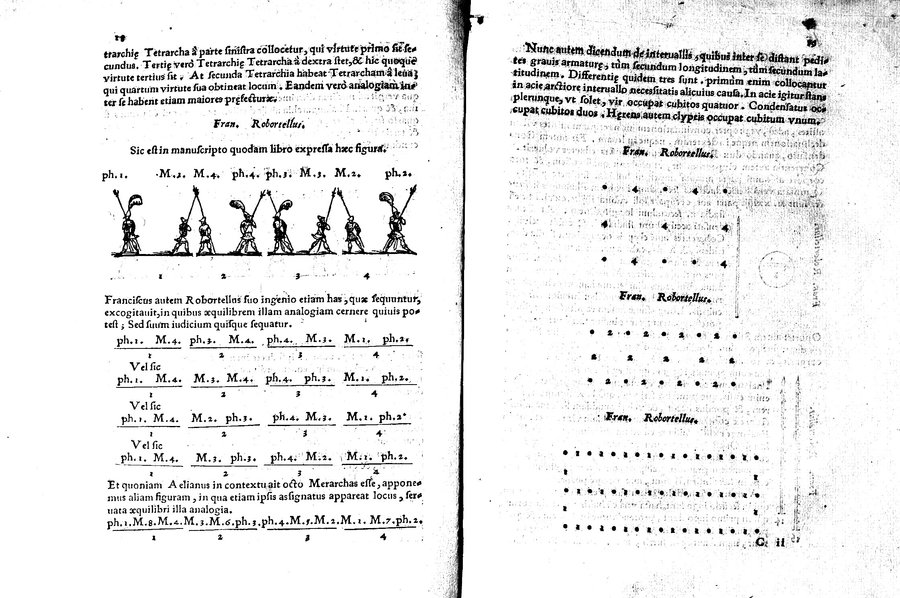 trarchię Tetrarcha à parte sinistra collocetur, qui virtute primo sit se-
cundus. Tertię verò Tetrarchię Tetrarcha à dextra stet, & hic quoque
virtute tertius sit. At secunda Tetrarchia habeat Tetrarcham à leua;
qui quartum virtute sua obtineat locum. Eandem verò analogiam in-
ter se habent etiam maiores pręfecturæ.
Fran. Robortellus.
Sic est in manuscripto quodam libro expressa hæc figura.
ph.1. M.2. M.4. ph.4. ph.3. M.3. M.2. ph.2.
1 2 3 4
Franciscus autem Robortellus suo ingenio etiam has, quæ sequuntur,
excogitauit, in quibus æquilibrem illam analogiam cernere quiuis po-
test; Sed suum iudicium quisque sequatur.
ph.1. M.4. ph.3. M.4. ph.4. M.3. M.1. ph.2.
1 2 3 4
Vel sic
ph.1. M.4. M.3. M.4. ph.4. ph.3. M.1. ph.2.
1 2 3 4
Vel sic
ph.1. M.4. M.2. ph.3. ph.4. M.3. M.1. ph.2.
1 2 3 4
Vel sic
ph.1. M.4. M.3. ph.3. ph.4. M.2. M.1. ph.2.
1 2 3 4
Et quoniam Aelianus in contextu ait octo Merarchas esse, appone-
mus aliam figuram, in qua etiam ipsis assignatus appareat locus, ser-
uata æquilibri illa analogia.
ph.1. M.8. M.4. M.3. M.6. ph.3. ph.4. M.5. M.2. M.1. M.7. ph.2.
1 2 3 4
Nunc autem dicendum de interuallis, quibus inter se distant pedi-
tes grauis armaturę, tùm secundum longitudinem, tùm secundum la-
titudinem. Differentię quidem tres sunt. primùm enim collocantur
in acie arctiore interuallo necessitatis alicuius causa, In acie igitur stans
plerunque, vt solet, vir occupat cubitos quatuor. Condensatus oc-
cupat cubitos duos. Hęrens autem clypeis occupat cubitum vnum.
Fran. Robortellus.
4 4
4 4 4 4
4 4
Fran. Robortellus.
2 2 2 2
2 2 2 2 2
2 2 2 2
Fran. Robortellus.
1 1 1 1 1 1 1 1
1 1
1 1 1 1 1 1 1 1
1 1
1 1 1 1 1 1 1 1
G ii